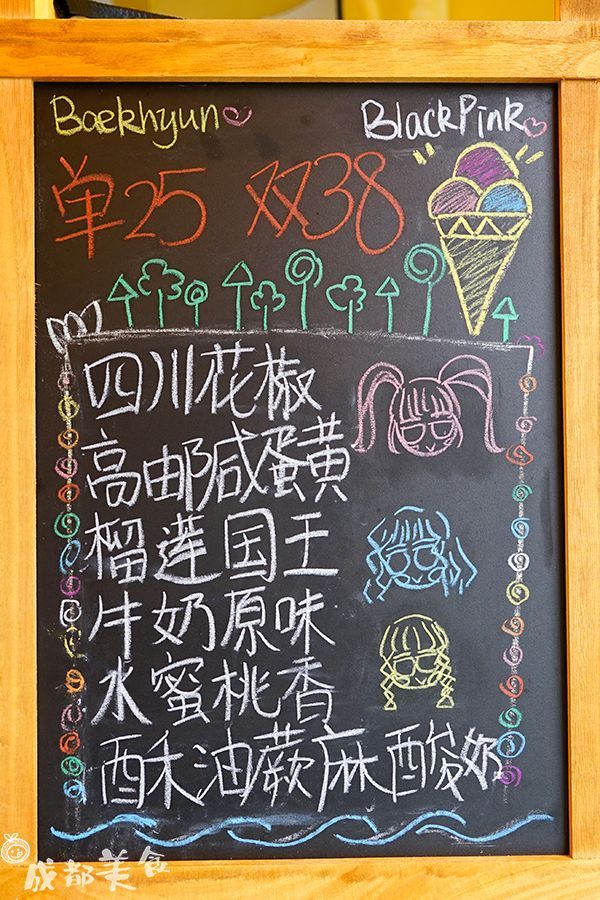 Baekhyun BlackPink
单25 双38
四川花椒
高邮咸蛋黄
榴莲国王
牛奶原味
水蜜桃香
酥油蕨麻酸奶
成都美食